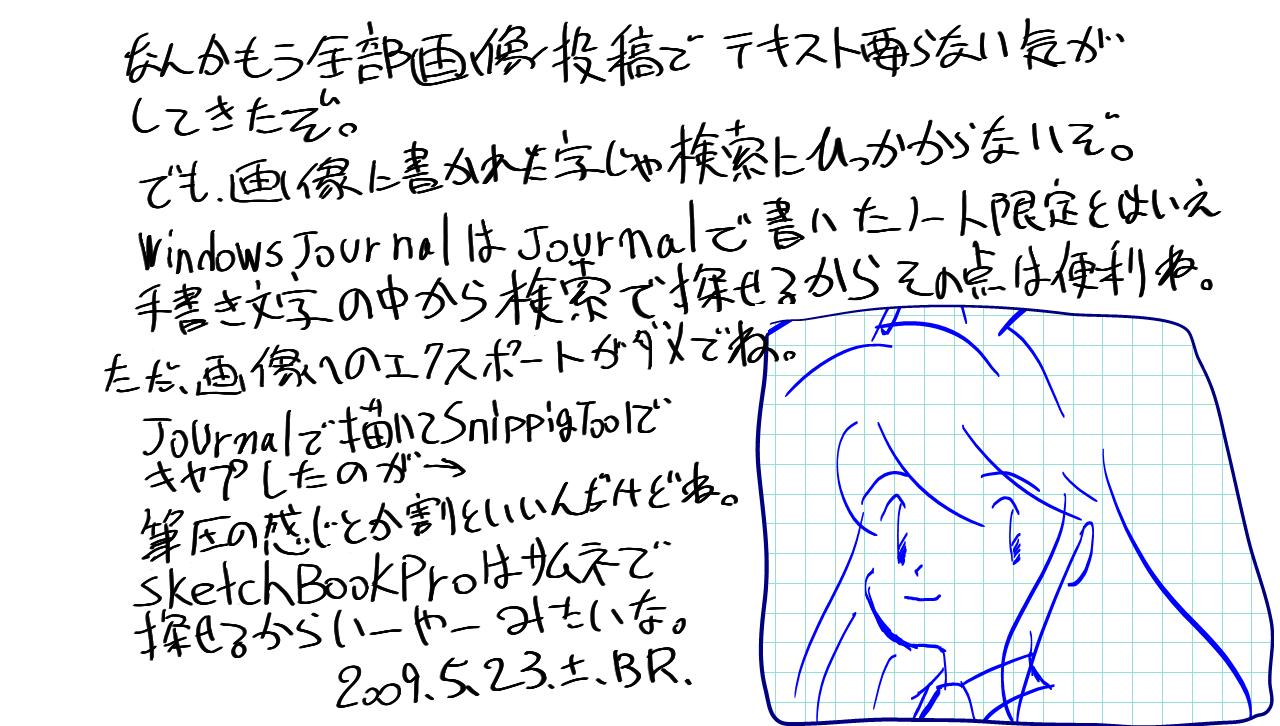 なんかもう全部画像投稿でテキスト要らない気が
してきたぞ。
でも、画像に書かれた字じゃ検索にひっかからないぞ。
Windows JournalはJournalで書いたノート限定とはいえ
手書き文字の中から検索で探せるからその点は便利ね。
ただ、画像へのエクスポートがダメでね。
Journalで描いてSnippigToolで
キャプしたのが→
筆圧の感じとか割といいんだけどね。
SketchBookProはサムネで
探せるからいーやーみたいな。
2009.5.23.土.BR.